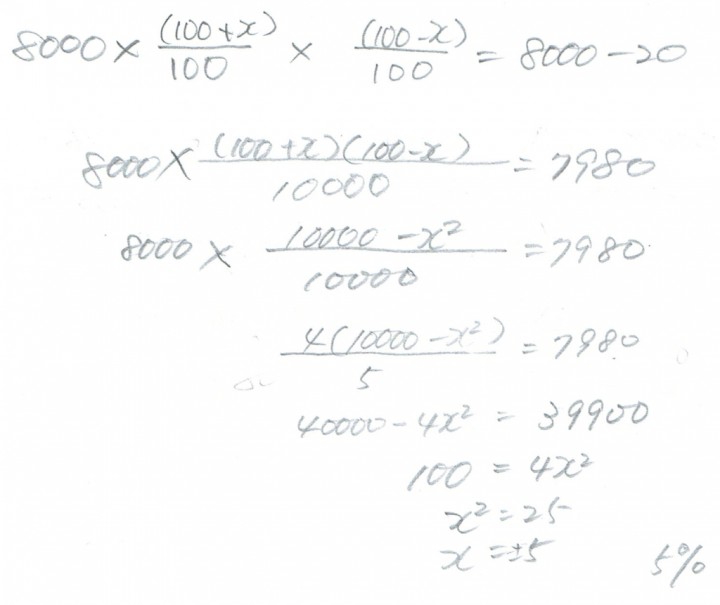 8000 × (100+x)/100 × (100-x)/100 = 8000-20
8000 × (100+x)(100-x)/10000 = 7980
8000 × 10000-x²/10000 = 7980
4(10000-x²)/5 = 7980
40000-4x² = 39900
100 = 4x²
x² = 25
x = ±5 5%